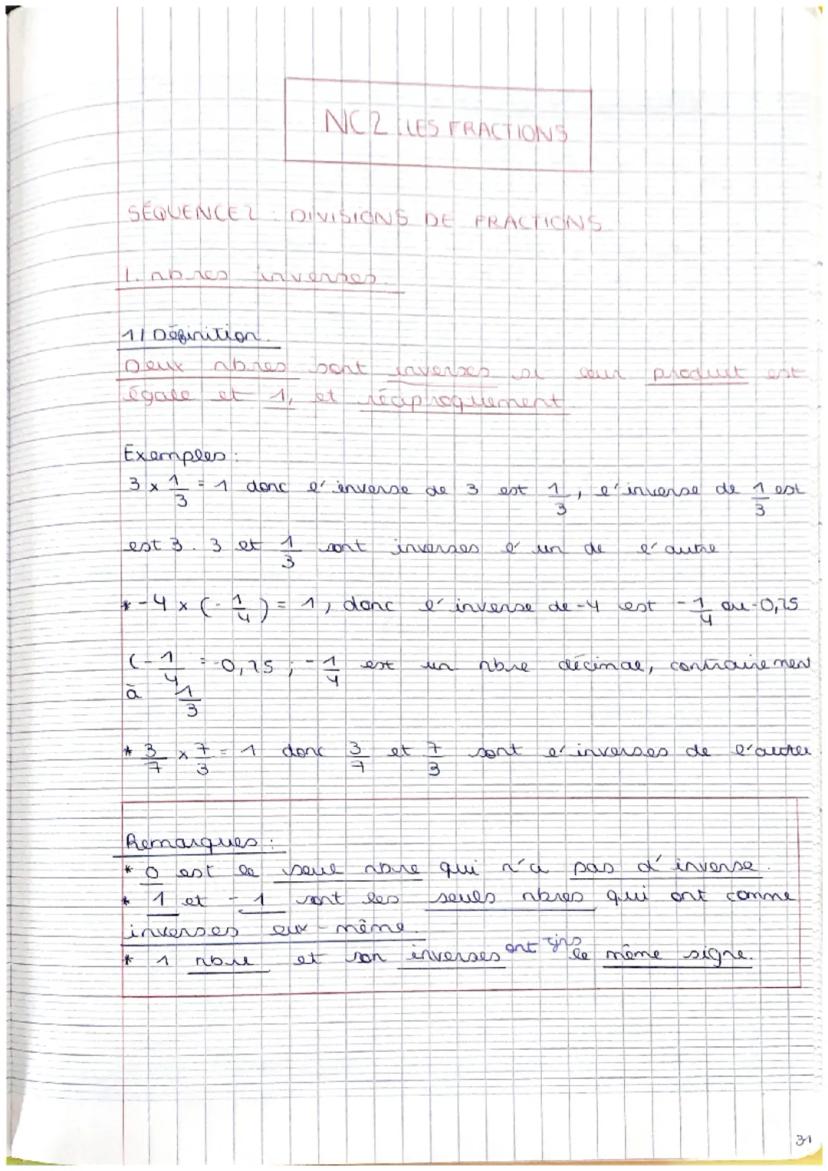 NC2 : LES FRACTIONS
SÉQUENCE 2 : DIVISIONS DE FRACTIONS
1. nbres inverses
1/ Définition.
Deux nbres sont inverses si leur produit est
égale et 1, et réciproquement
Exemples :
3 × 1/3 = 1 donc l'inverse de 3 est 1/3, l'inverse de 1/3 est
est 3. 3 et 1/3 sont inverses l'un de l'autre
* -4 × (-1/4) = 1, donc l'inverse de -4 est -1/4 ou -0,25
(-1/4 = -0,25 ; -1/4 est un nbre décimal, contrairemen
à 1/3
* 3/7 × 7/3 = 1 donc 3/7 et 7/3 sont l'inverses de l'autre
Remarques :
* 0 est le seul nbre qui n'a pas d'inverse.
* 1 et -1 sont les seuls nbres qui ont comme
inverses eux-même.
* 1 nbre et son inverses ont tjrs le même signe.
31